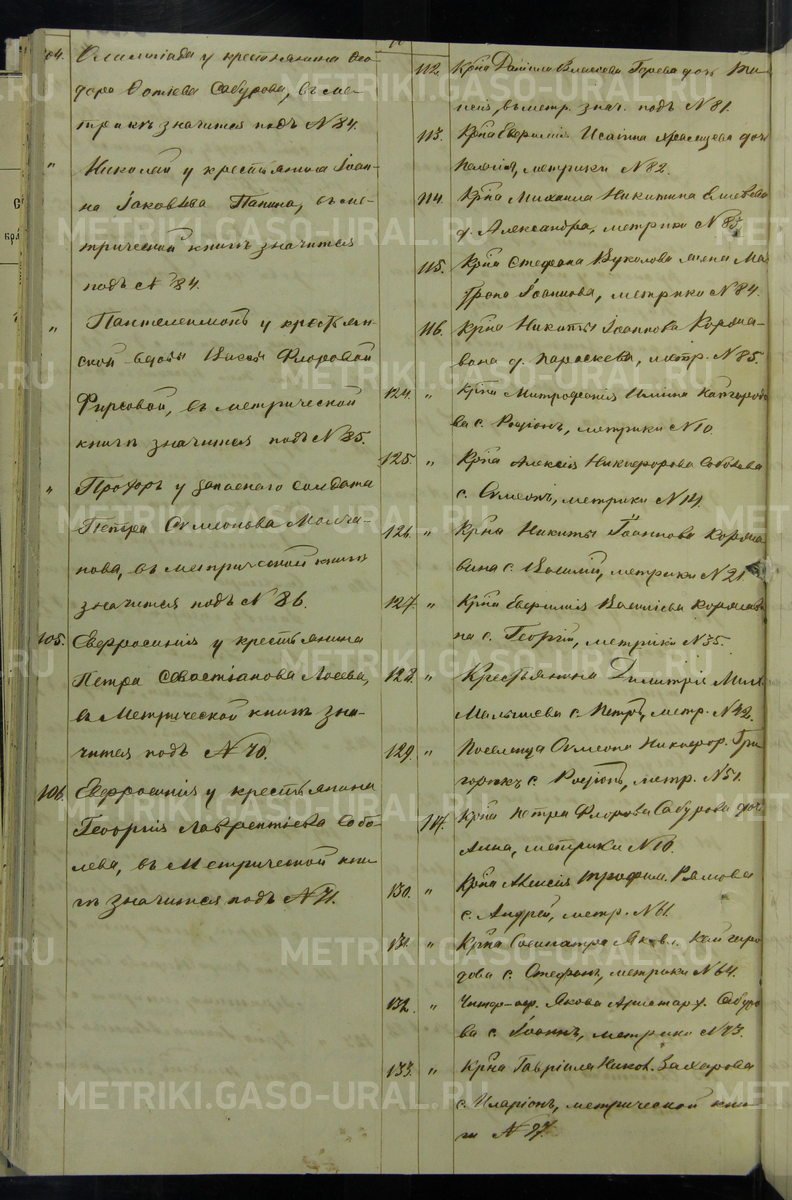 104. Олимпіада у крестьянина Ѳео-
дора Фотіева Сабурова, въ ме-
трикѣ значится подъ №84.
" Николай у крестьянина Іоан-
на Іаковлева Панина, въ ме-
трической книгѣ значится
подъ №84.
" Пантелеимонъ у крестьян-
ской вдовы Флоровой
Фирсовой, въ метрической
книгѣ значится подъ №85.
" Прохоръ у запаснаго солдата
Петра Сѵмеонова Молча-
нова, въ метрической книгѣ
значится подъ №86.
105. Евфросинія у крестьянина
Петра Севастіанова Лосева,
въ Метрической книгѣ зна-
чится подъ №70.
106. Евфросинія у крестьянина
Георгія Лаврентіева Собо-
лева, въ Метрической кни-
гѣ значится подъ №71.
112. Крна Даніила Власова дочь
въ метр. знач. подъ №81.
113. Крна Евфимія Исаіина дочь
Пелагія, метрики №82.
114. Крна Михаила Никитина
д. Александра, метрики №83.
115. Крна Стефана Вуколова Ма-
трона Іоаннова, метрики №84.
116. Крна Никиты Іоаннова Корми-
вина д. Параскева, метр. №85.
124. " Крна Митрофанія Ильина Кайгородо
ва с. Родіонъ, метрики №10.
125. " Крна Алексія Никифорова Соболева
с. Сѵмеонъ, метрики №14.
126. " Крна Никиты Іоаннова
с. Василій, метрики №21
127. " Крна Евфимія Василіева
на с. Георгій, метрики №35.
128. " Крестьянина Димитрія
Малышева с. Петръ, метр. №42.
129. " Поселенца Сѵмеона Никифор. Гри
с. Родіонъ, метр. №51.
117. Крна Петра Флорова Сабурова дочь
Анна, метрики №10.
130. " Крна Алексія Трофим. Рямова
с. Андрей, метр. №61.
131. " Крна Сосипатра Яковл. Кайгоро
дова с. Стефанъ, метрики №64.
132. " Унтер-оф. Якова Аристарх. Сабуро
ва с. Іоаннъ, метрики №73.
133. " Крна Гавріила Никол. Захарова
с. Иларіонъ, метрической кни-
ги №87.
METRIKI.GASO-URAL.RU